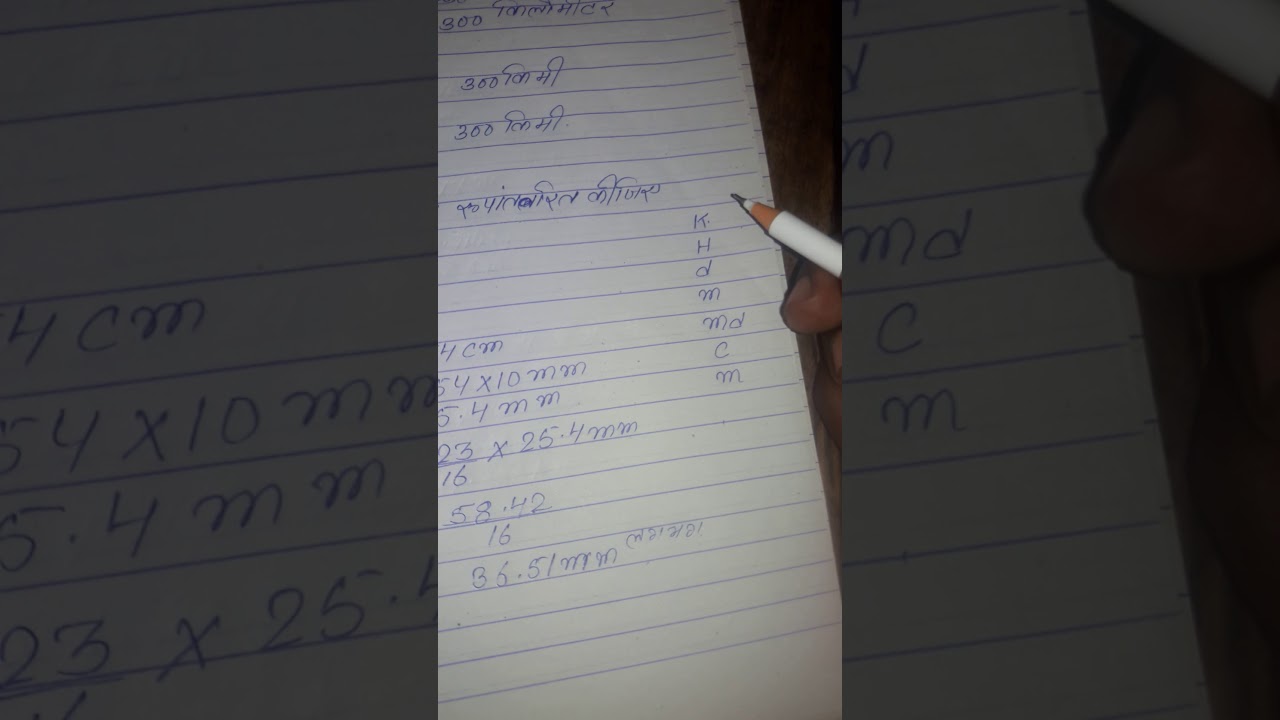 300 किलोमीटर
300 किमी
300 किमी.
रूपांतरित कीजिए
K.
H
d
m
4 cm
md
54 X 10 mm
C
5.4 mm
m
23 X 25.4 mm
16
58.42
16
36.51 mm लगभग